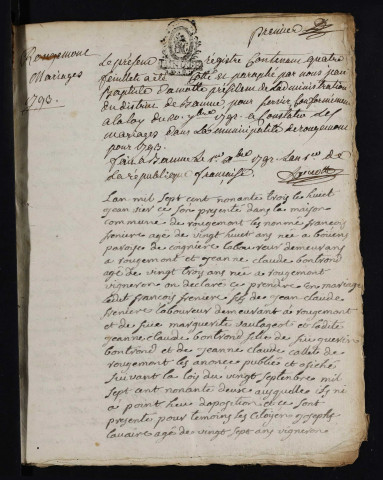 premier
Rougemont
Mariages
1793.
Le présent Régistre Contenant quatre
feuillets a été Cotté et paraphé par nous jean
Baptiste président de Ladministration
du district de Baume, pour servir Conformement
a la loy du 20. 7bre 1792. a Constater les
mariages dans La municipalité de rougemont
pour 1793.
fait a Baume Le 1792. Lan 1er de
La republique française
Lan mil sept cent nonante trois le huet
jeanvier ce son presente dans la maison
commune de rougemont les nommé françois
freniere age de vingt huet ans né a
paroise de cognière laboureur demeurans
a rougemont et jeanne claude bontrond
agé de vingt trois ans née a rougemont
vigneron on declaré ce prendre en mariage
ledit françois freniere fils de jean claude
freniere laboureur demeurant a rougemont
et de feue marguerite et ladite
jeanne claude bontrond filie de feu
bontrond et de jeanne claude callet de
rougemont les anonce publié et afiché
suivant la lois du vingt septembre mil
sept cent nonante deux ausquelle il né
a point heu doposition et ce sont
presenté pour temoins les citoyen joseph
lavaire agé de vingt sept ans vigneron